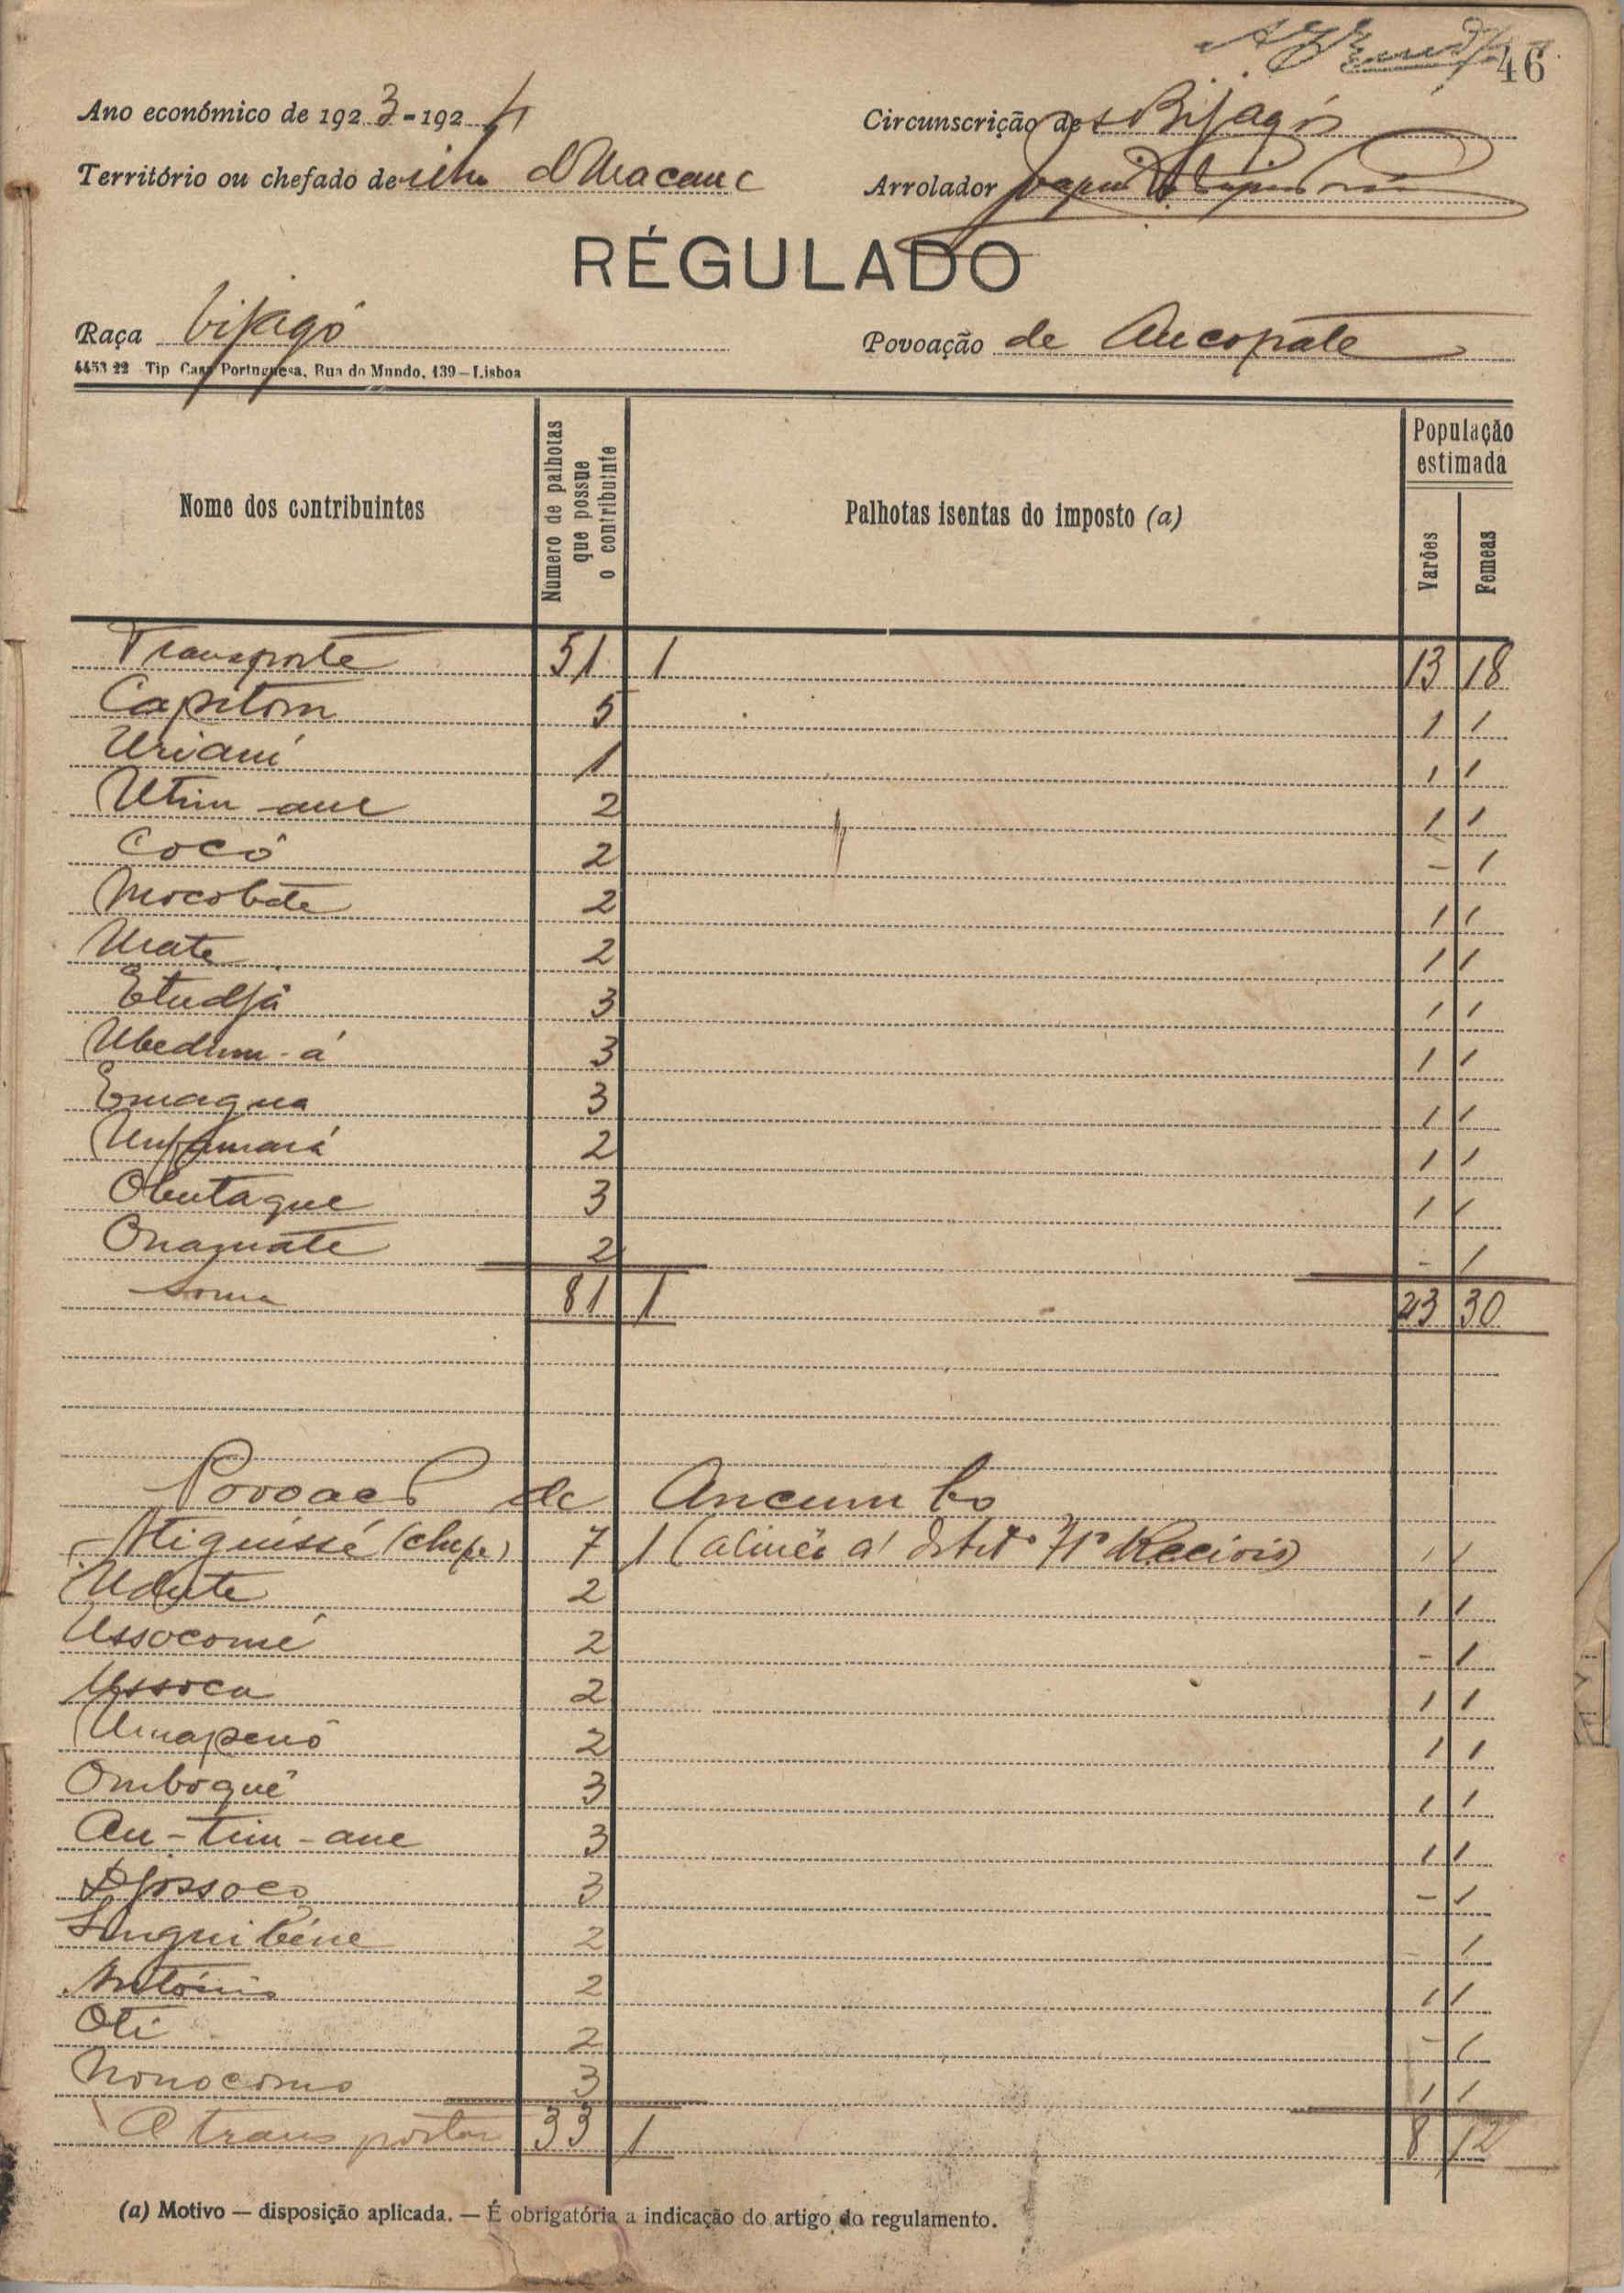 46
Ano económico de 1923-1924 Circunscrição de Bijagós
Território ou chefado de ilha d'Uracane Arrolador
RÉGULADO
Raça bijagó Povoação de Ancopate
4453 22 Tip Casa Portuguesa, Rua do Mundo, 139—Lisboa
Nome dos contribuintes
Numero de palhotas que possue o contribuinte
Palhotas isentas do imposto (a)
População estimada
Varões
Femeas
Transporte 51 1 13 18
Capitom 5 1 1
Uriani 1 1 1
Utim-ane 2 1 1
Cocó 2 - 1
Mocobate 2 1 1
Urate 2 1 1
Etudjá 3 1 1
Ubedum-á 3 1 1
Emagna 3 1 1
Unfamará 2 1 1
Obutaque 3 1 1
Onaguate 2 - 1
Soma 81 1 23 30
Povoação de Ancumbo
Atiguissé (chefe) 7 1 (alinea a) 1 1
Udute 2 1 1
Ussocomé 2 - 1
Ussoca 2 1 1
Umapenó 2 1 1
Omboquê 3 1 1
An-tim-ane 3 1 1
Djossoco 3 - 1
2 - 1
António 2 1 1
Oti 2 - 1
Nonocomo 3 1 1
A transportar 33 1 8 12
(a) Motivo — disposição aplicada. — É obrigatória a indicação do artigo do regulamento.